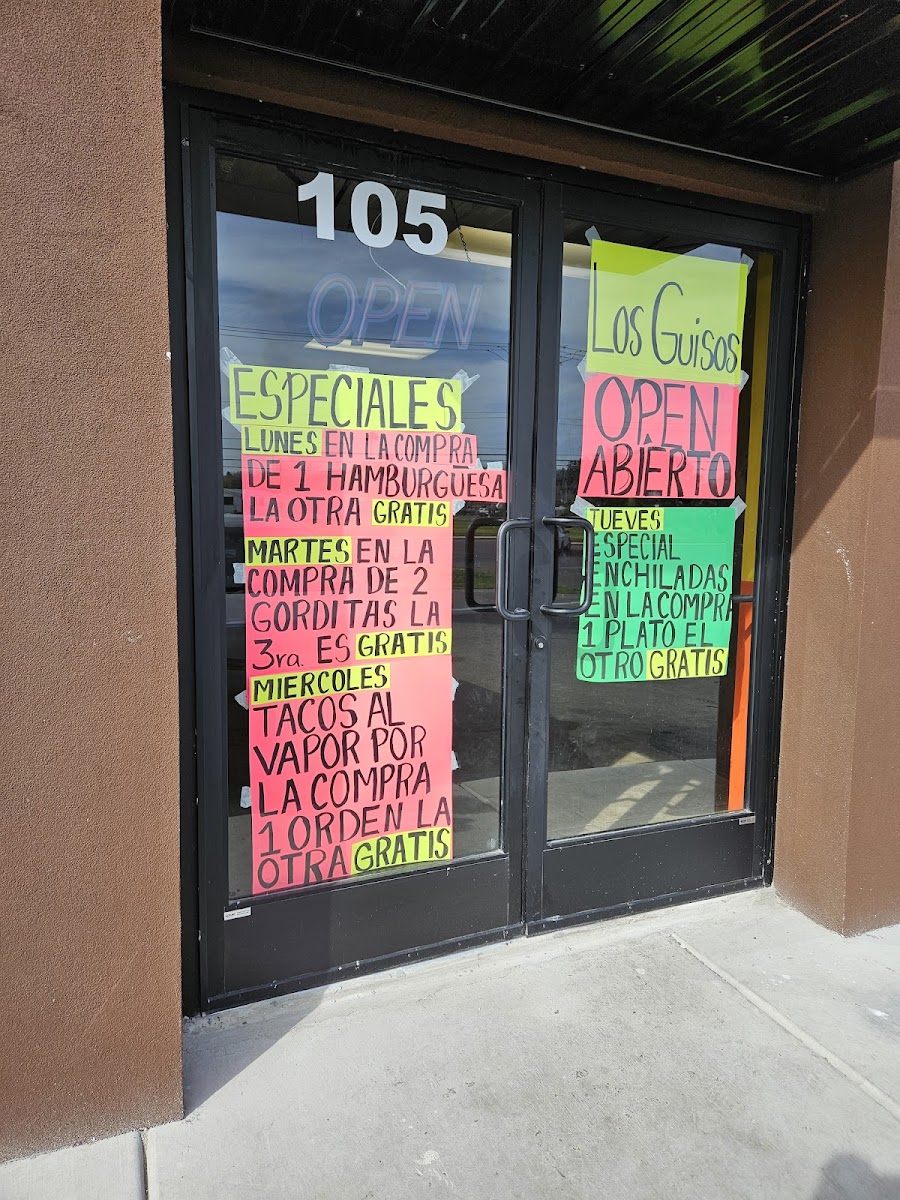 105
OPEN
ESPECIALES
LUNES EN LA COMPRA
DE 1 HAMBURGUESA
LA OTRA GRATIS
MARTES EN LA
COMPRA DE 2
GORDITAS LA
3ra. ES GRATIS
MIERCOLES
TACOS AL
VAPOR POR
LA COMPRA
1 ORDEN LA
OTRA GRATIS
Los Guisos
OPEN
ABIERTO
JUEVES
ESPECIAL
ENCHILADAS
EN LA COMPRA
1 PLATO EL
OTRO GRATIS